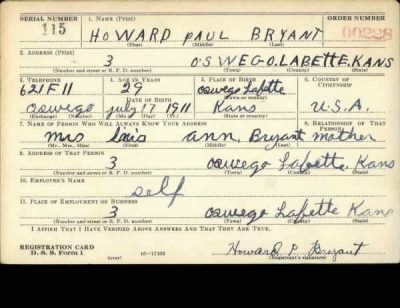 SERIAL NUMBER 1. NAME (Print) ORDER NUMBER
115 HOWARD PAUL BRYANT 00228
(First) (Middle) (Last)
2. ADDRESS (Print)
3 OSWEGO, LABETTE, KANS
(Number and street or R. F. D. number) (Town) (County) (State)
3. TELEPHONE 4. AGE IN YEARS 5. PLACE OF BIRTH 6. COUNTRY OF CITIZENSHIP
621F11 29 Oswego Labette
DATE OF BIRTH (Town or county)
Oswego July 17 1911 Kans U.S.A.
(Exchange) (Number) (Mo.) (Day) (Yr.) (State or country)
7. NAME OF PERSON WHO WILL ALWAYS KNOW YOUR ADDRESS 8. RELATIONSHIP OF THAT PERSON
Mrs Ann, Bryant mother
(Mr., Mrs., Miss) (First) (Middle) (Last)
9. ADDRESS OF THAT PERSON
3 Oswego Labette, Kans
(Number and street or R. F. D. number) (Town) (County) (State)
10. EMPLOYER'S NAME
self
11. PLACE OF EMPLOYMENT OR BUSINESS
3 Oswego Labette Kans
(Number and street or R. F. D. number) (Town) (County) (State)
I AFFIRM THAT I HAVE VERIFIED ABOVE ANSWERS AND THAT THEY ARE TRUE.
REGISTRATION CARD Howard P. Bryant
D. S. S. Form 1 (over) (Registrant's signature)